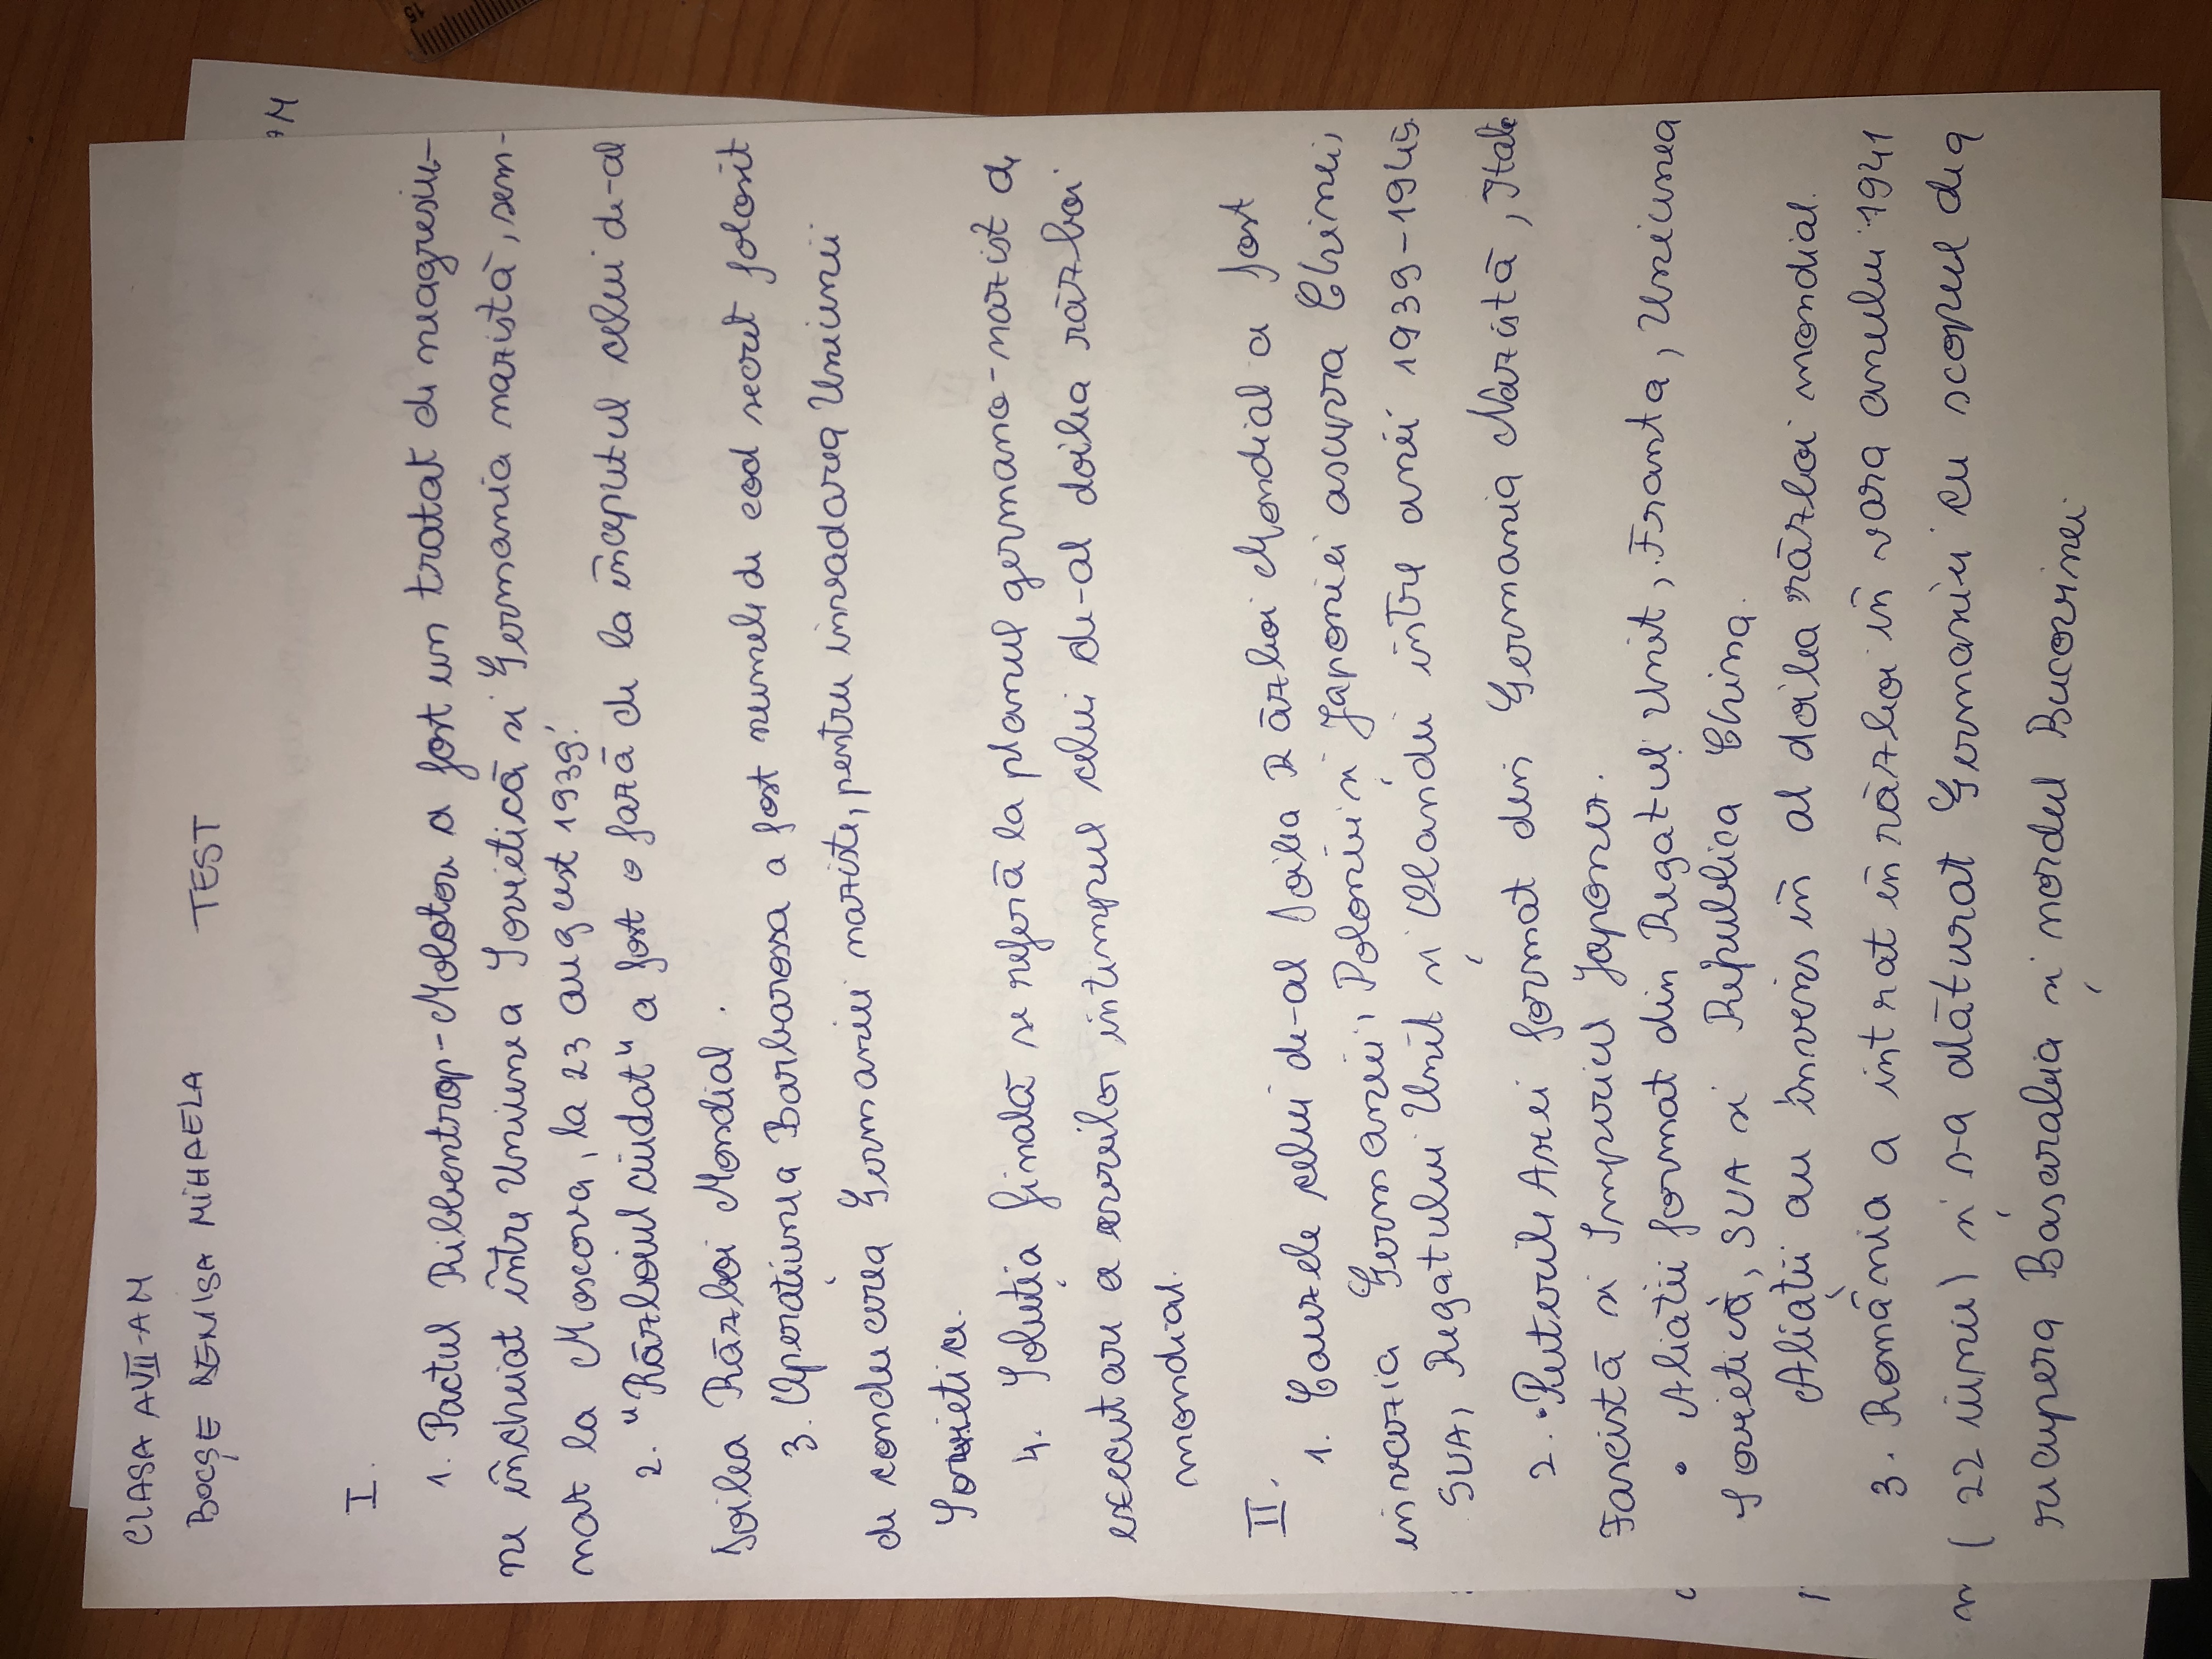 CLASA A VII-A M
BOCȘE DENISA MIHAELA TEST
I.
1. Pactul Ribbentrop-Molotov a fost un tratat de neagresiu-
ne încheiat între Uniunea Sovietică si Germania nazistă, sem-
nat la Moscova, la 23 august 1939.
2. "Războiul ciudat" a fost o fază de la începutul celui de-al
Doilea Război Mondial.
3. Operațiunea Barbarossa a fost numele de cod secret folosit
de conducerea Germaniei naziste, pentru invadarea Uniunii
Sovietice.
4. Soluția finală se referă la planul germano-nazist de
executare a evreilor in timpul celui de-al doilea război
mondial.
II.
1. Cauzele celui de-al Doilea Război Mondial a fost
invazia Germaniei, Poloniei și Japoniei asupra Chinei,
SUA, Regatului Unit și Olandei între anii 1939-1945.
2. • Puterile Axei format din Germania Nazistă, Italia
Fascistă si Imperiul Japonez.
• Aliatii format din Regatul Unit, Franta, Uniunea
Sovietică, SUA si Republica China.
Aliații au învins în al doilea război mondial.
3. România a intrat în război în vara anului 1941
(22 iunie) și s-a alăturat Germaniei cu scopul de a
recupera Basarabia și nordul Bucovinei